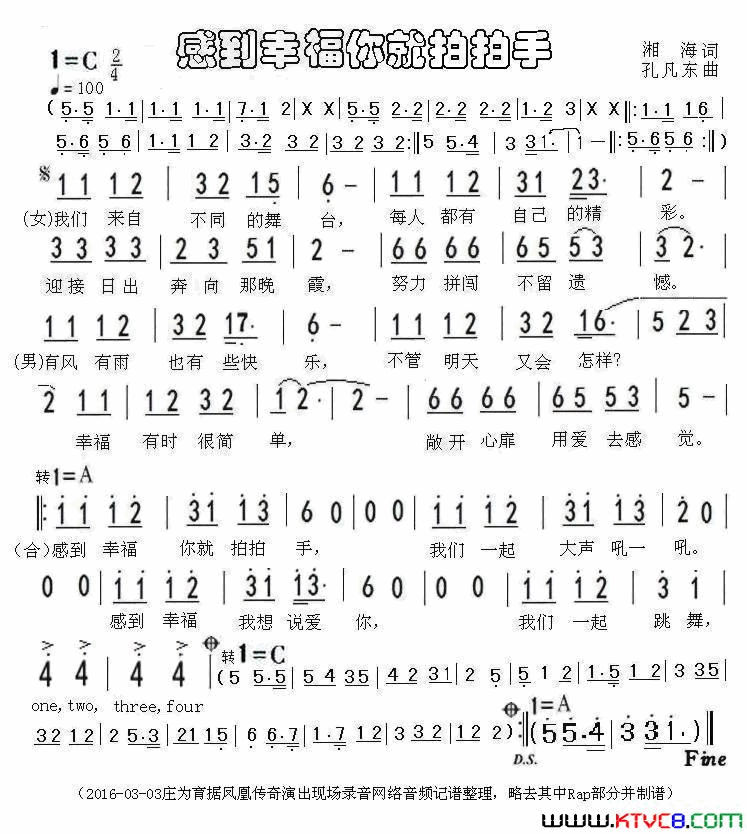 感到幸福你就拍拍手
1=C 2/4
♩=100
湘 海 词
孔凡东 曲
(5·5 1·1 | 1·1 1·1 | 7·1 2 | X X | 5·5 2·2 | 2·2 2·2 | 1·2 3 | X X ‖: 1·1 16 |
5·6 5·6 | 1·1 1 2 | 3·2 3 2 | 3 2 3 2 :‖ 5 5·4 | 3 3 3 1· | 1 — ‖: 5·6 5·6 :‖ )
1 1 1 2 | 3 2 1 5 | 6 - | 1 1 1 2 | 3 1 2 3· | 2 - |
(女)我们 来自 不同 的舞 台, 每人 都有 自己 的精 彩。
3 3 3 3 | 2 3 5 1 | 2 - | 6 6 6 6 | 6 5 5 3 | 3 2· |
迎接 日出 奔 向 那晚 霞, 努力 拼闯 不留 遗 憾。
1 1 1 2 | 3 2 1 7· | 6 - | 1 1 1 2 | 3 2 1 6· | 5 2 3 |
(男)有风 有雨 也有 些快 乐, 不管 明天 又会 怎样?
2 1 1 | 1 2 3 2 | 1 2· | 2 - | 6 6 6 6 | 6 5 5 3 | 5 - |
幸福 有时 很简 单, 敞开 心扉 用爱 去感 觉。
转1=A
‖: 1 1 1 2 | 3 1 1 3 | 6 0 | 0 0 | 1 1 1 2 | 3 1 1 3 | 2 0 |
(合)感到 幸福 你就 拍拍 手, 我们 一起 大声 吼一 吼。
0 0 | 1 1 1 2 | 3 1 1 3· | 6 0 | 0 0 | 1 1 1 2 | 3 1 |
感到 幸福 我想 说爱 你, 我们 一起 跳 舞,
4 4 | 4 4 | 转1=C (5 5·5 | 5 4 3 5 | 4 2 3 1 | 2 5 | 5·1 2 | 1·5 1 2 | 3·1 2 |
one,two, three,four
3 2 1 2 | 2 5·3 | 2 1 1 5 | 6·7 6 | 1·7 1 2 | 3 3 2 | 1 2 ) :‖ 1=A (5 5·4 | 3 3 1· )‖
D.S. Fine
(2016-03-03庄为育据凤凰传奇演出现场录音网络音频记谱整理,略去其中Rap部分并制谱)
www.KTVC8.com